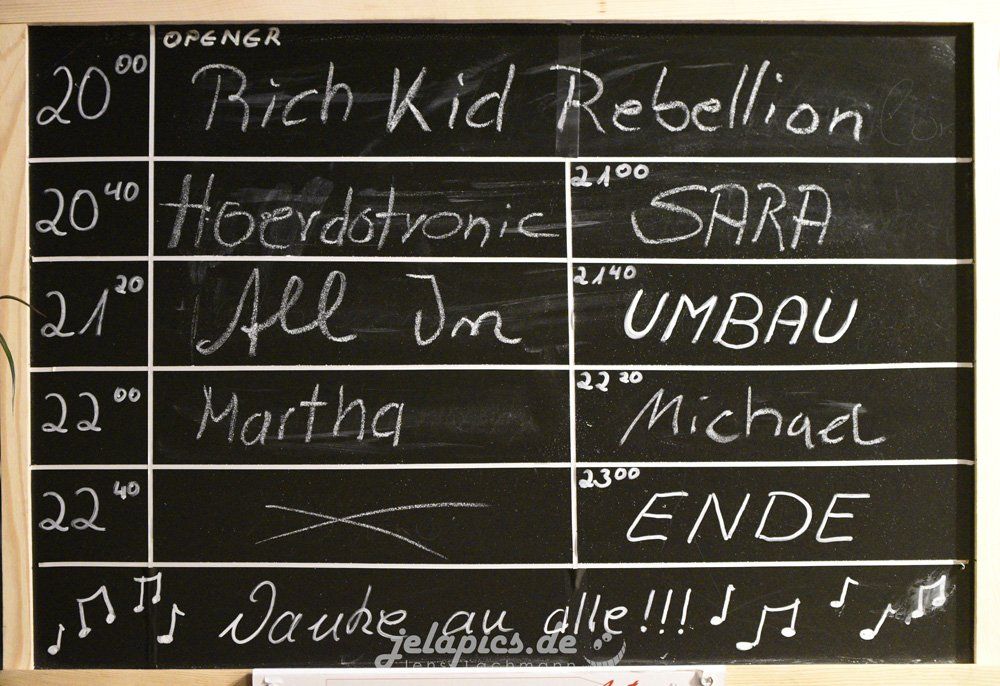 OPENER
20 00 Rich Kid Rebellion
20 40 Hoerdstronic 21 00 SARA
21 20 All In 21 40 UMBAU
22 00 Martha 22 20 Michael
22 40 23 00 ENDE
Danke an alle!!!
jelapics.de
jens lachmann